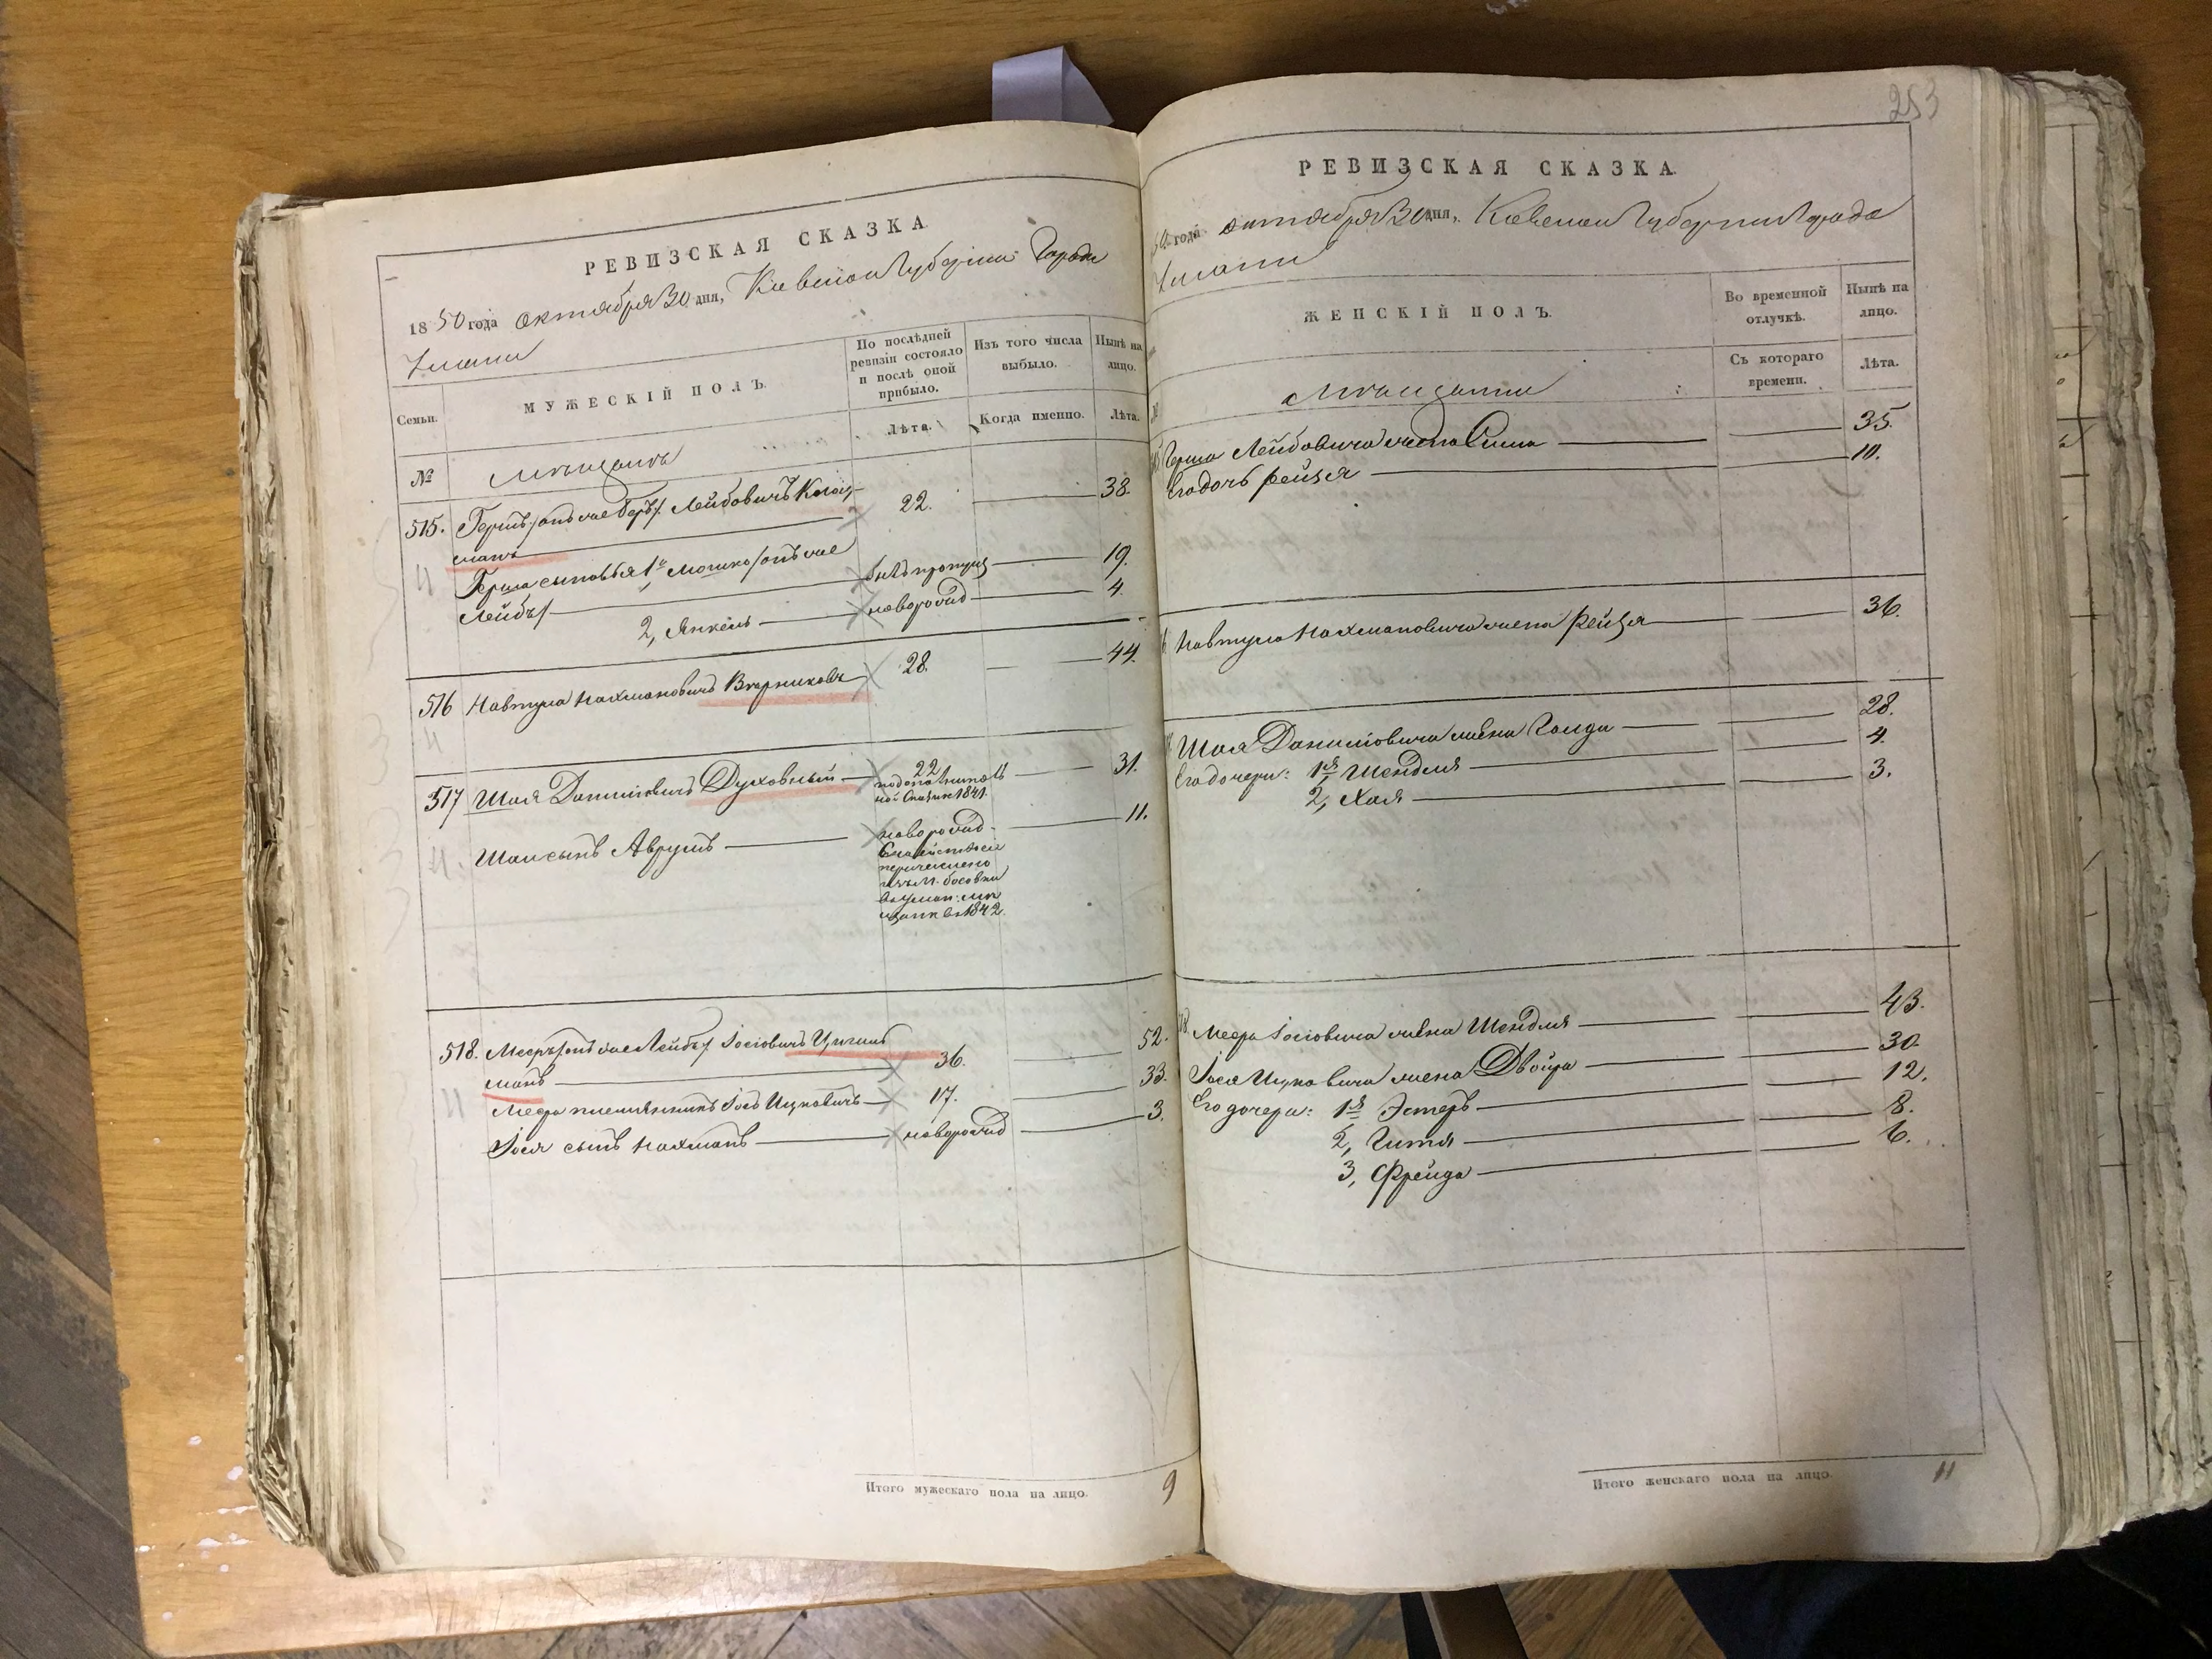 РЕВИЗСКАЯ СКАЗКА
1850 года октября 30 дня, Киевской Губернии Города
Умани
Семьи.
МУЖЕСКІЙ ПОЛЪ.
По послѣдней ревизіи состояло и послѣ оной прибыло.
Изъ того числа выбыло.
Нынѣ на лицо.
Лѣта.
Когда именно.
Лѣта.
№ Мѣщане
515. Гершъ /онъ же Беръ/ Лейбовичъ 22. 38.
манъ
Герша сыновья 1й Мошко /онъ же 19.
Лейбъ/
2, Янкель новорожд 4.
516 Навтула Нахмановичъ Варшиковъ 28. 44.
517 Шая Даниловичъ Духовный 22 31.
по дополнитель
ной сказкѣ 1841.
Шаи сынъ Аврумъ новорожд 11.
Семейство сіе
перечислено
изъ м. Босовки
въ Уман: мѣ
щане въ 1842.
518. Мееръ /онъ же Лейбъ/ Іосіовичъ Цукер 36. 52.
манъ
Меера племянникъ Іось Ицковичъ 17. 33.
Іося сынъ Нахманъ новорожд 3.
Итого мужескаго пола на лицо. 9
253
РЕВИЗСКАЯ СКАЗКА.
50 года октября 30 дня, Киевской Губернии Города
Умани
ЖЕНСКІЙ ПОЛЪ.
Во временной отлучкѣ.
Нынѣ на лицо.
Съ котораго времени.
Лѣта.
Мѣщанки
Герша Лейбовича жена 35.
Его дочь Рейзя 10.
Навтула Нахмановича жена Рейзя 36.
Шая Даниловича жена Голда 28.
Его дочери: 1я Шендля 4.
2, Хая 3.
Меера Іосіовича жена Шендля 43.
Іося Ицковича жена Двойра 30.
Его дочери: 1я Эстеръ 12.
2, Гитля 8.
3, Фрейда 6.
Итого женскаго пола на лицо. 11